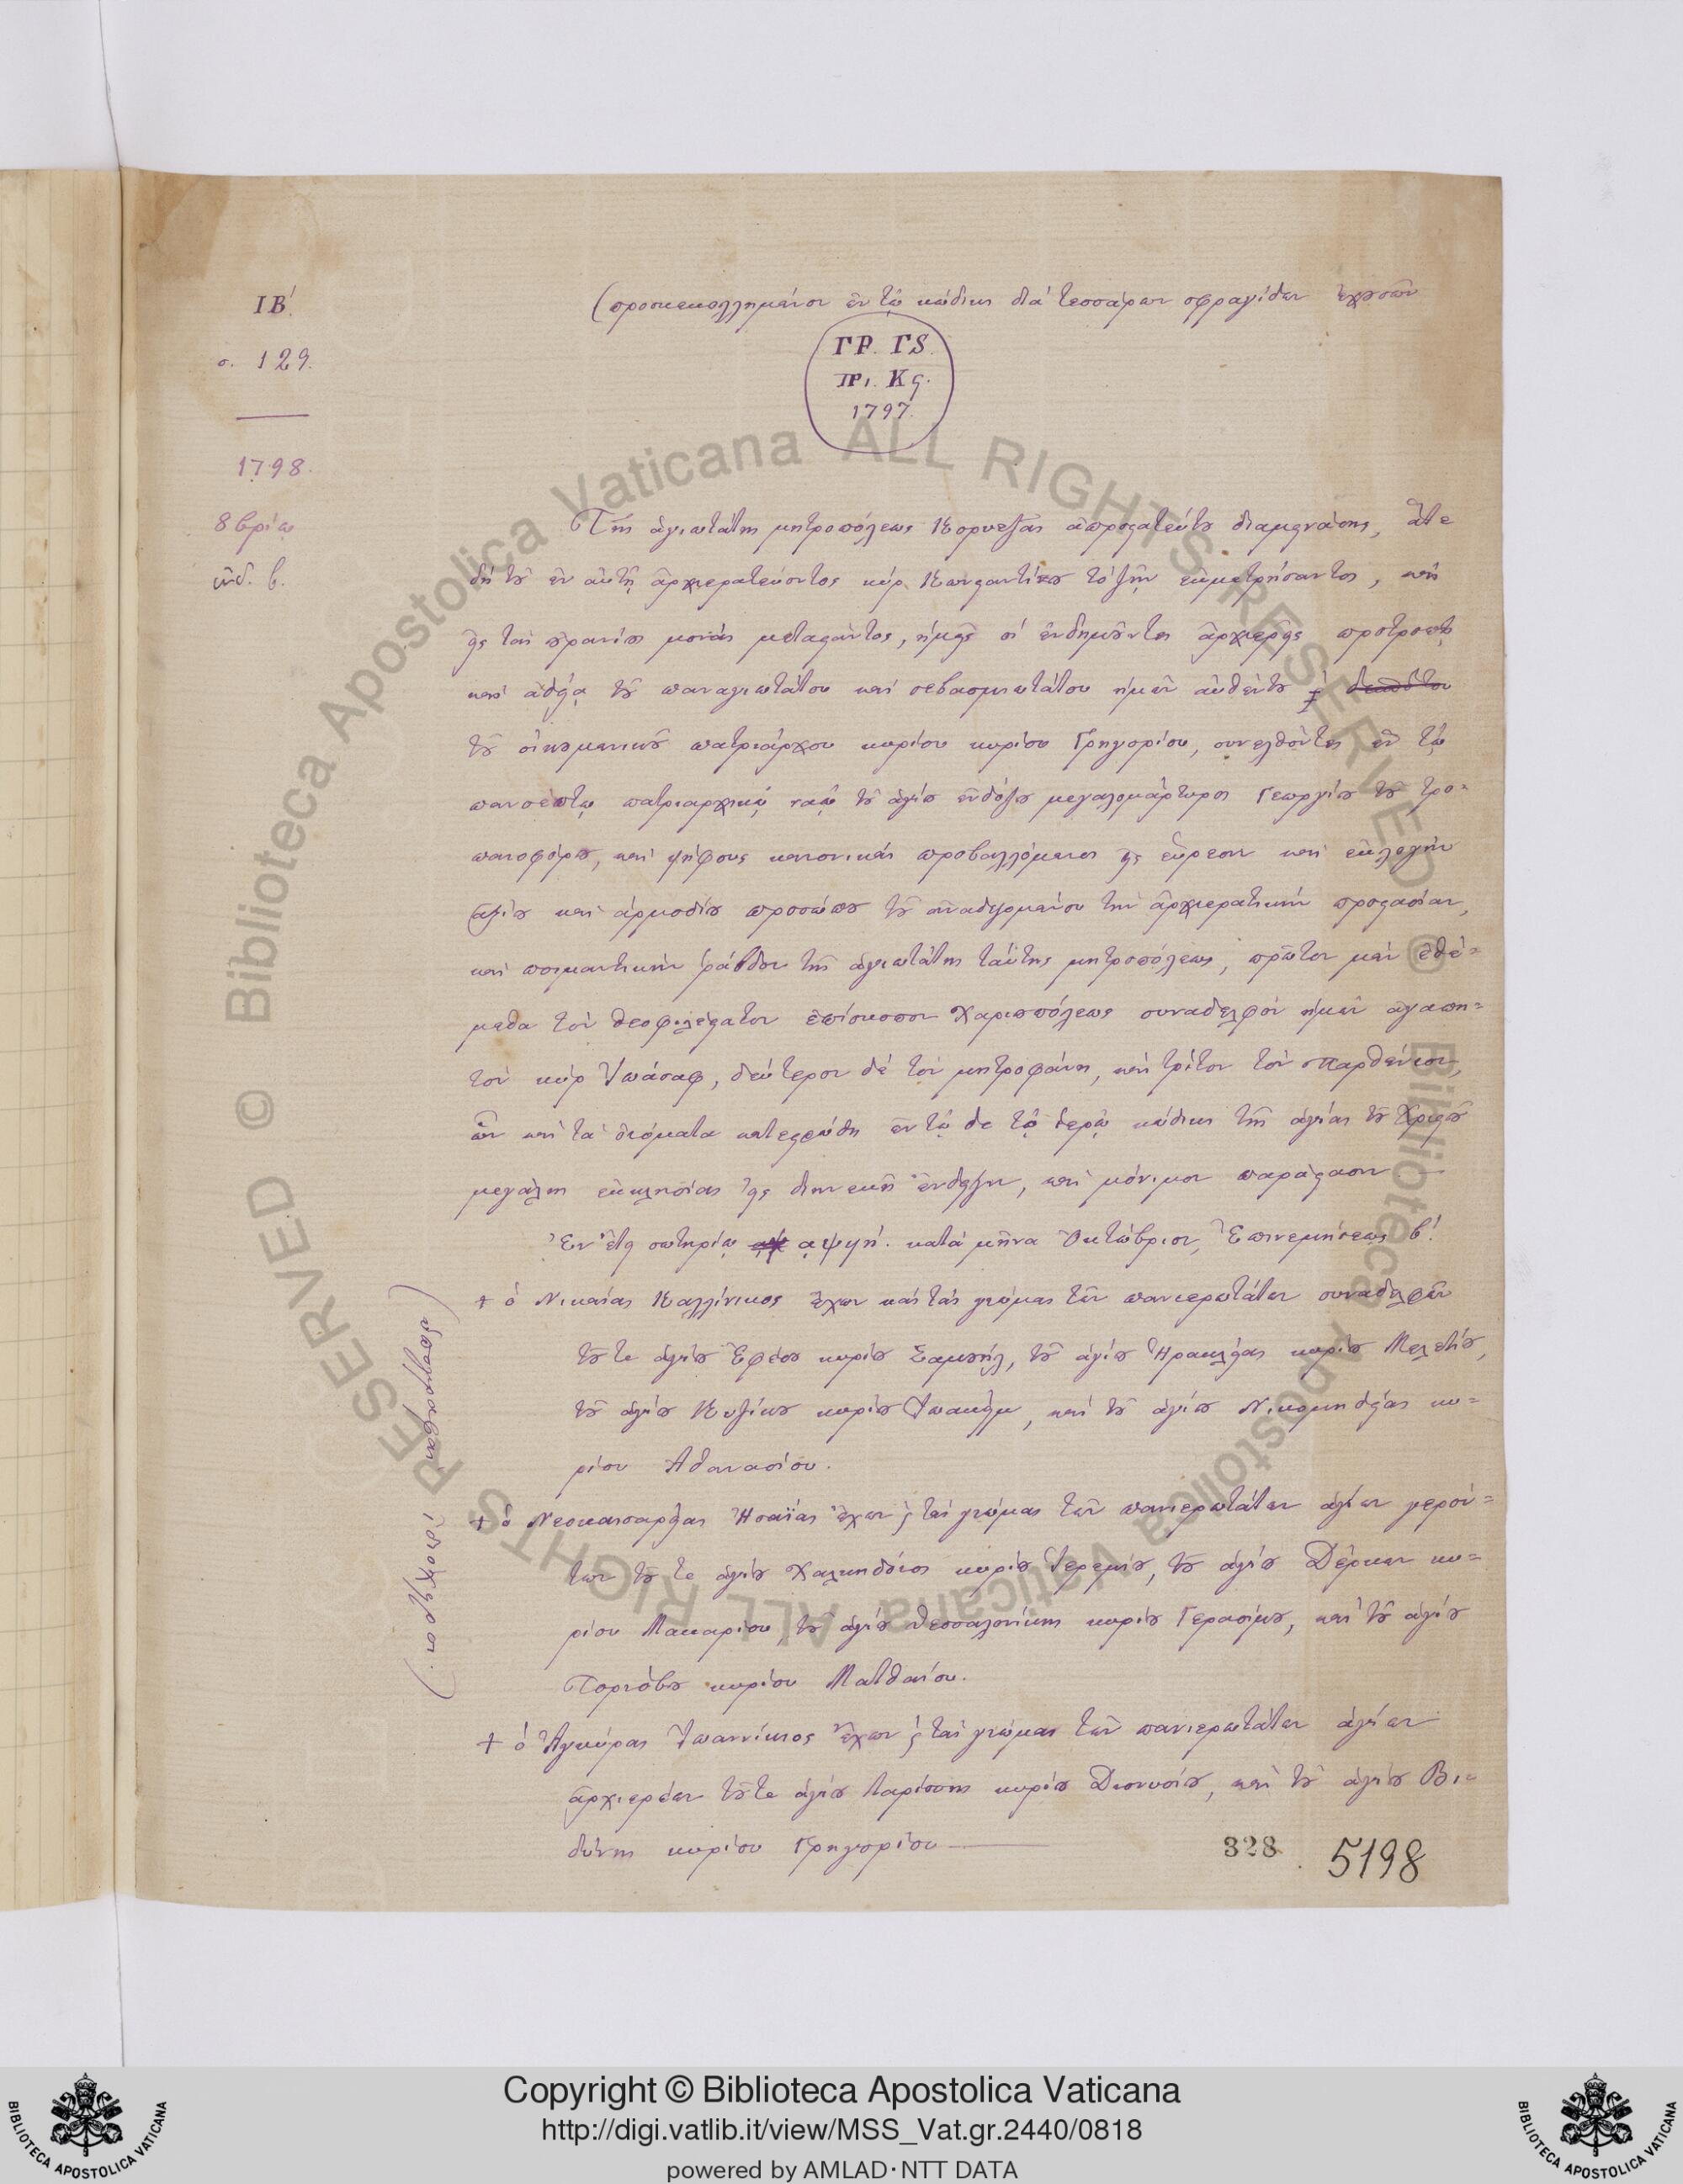 ΙΒ΄.
σ. 129.
1798.
8βρίῳ
ἰνδ. β.
(προσκεκολλημένον ἐν τῷ κώδικι διὰ τεσσάρων σφραγίδων ἐχουσῶν
ΓΡ. ΓS.
ΠΡι. Κς.
1797.
Τῆς ἁγιωτάτης μητροπόλεως Κορυτζᾶς ἀπροστατεύτου διαμεινάσης, ἅτε
δὴ τοῦ ἐν αὐτῇ ἀρχιερατεύοντος κὺρ Κωνσταντίου τὸ ζῆν ἐκμετρήσαντος, καὶ
εἰς τὰς οὐρανίους μονὰς μεταστάντος, ἡμεῖς οἱ ἐνδημοῦντες ἀρχιερεῖς προτροπῇ
καὶ ἀδείᾳ τοῦ παναγιωτάτου καὶ σεβασμιωτάτου ἡμῶν αὐθέντου
τοῦ οἰκουμενικοῦ πατριάρχου κυρίου κυρίου Γρηγορίου, συνελθόντες ἐν τῷ
πανσέπτῳ πατριαρχικῷ ναῷ τοῦ ἁγίου ἐνδόξου μεγαλομάρτυρος Γεωργίου τοῦ τρο=
παιοφόρου, καὶ ψήφους κανονικὰς προβαλλόμενοι εἰς εὕρεσιν καὶ ἐκλογὴν
ἀξίου καὶ ἁρμοδίου προσώπου τοῦ ἀναδεξομένου τὴν ἀρχιερατικὴν προστασίαν,
καὶ ποιμαντικὴν ράβδον τῆς ἁγιωτάτης ταύτης μητροπόλεως, πρῶτον μὲν ἐθέ=
μεθα τὸν θεοφιλέστατον ἐπίσκοπον Χαριουπόλεως συναδελφὸν ἡμῶν ἀγαπη=
τὸν κὺρ Ἰωάσαφ, δεύτερον δὲ τὸν μητροφάνη, καὶ τρίτον τὸν Παρθένιον,
ὧν καὶ τὰ ὀνόματα κατεστρώθη ἐν τῷ δε τῷ ἱερῷ κώδικι τῆς ἁγίας τοῦ Χριστοῦ
μεγάλης ἐκκλησίας εἰς διηνεκῆ ἔνδειξιν, καὶ μόνιμον παράστασιν
Ἐν ἔτει σωτηρίῳ αψϟη΄. κατὰ μῆνα Ὀκτώβριον, Ἐπινεμήσεως β΄.
+ ὁ Νικαίας Καλλίνικος ἔχων καὶ τὰς γνώμας τῶν πανιερωτάτων συναδελφῶν
τοῦ τε ἁγίου Ἐφέσου κυρίου Σαμουήλ, τοῦ ἁγίου Ἡρακλείας κυρίου Μελετίου,
τοῦ ἁγίου Κυζίκου κυρίου Ἰωακεὶμ, καὶ τοῦ ἁγίου Νικομηδείας κυ=
ρίου Ἀθανασίου.
+ ὁ Νεοκαισαρείας Ἡσαΐας ἔχων ϗ τὰς γνώμας τῶν πανιερωτάτων ἁγίων γερόν=
των τοῦ τε ἁγίου Χαλκηδόνος κυρίου Ἱερεμίου, τοῦ ἁγίου Δέρκων κυ=
ρίου Μακαρίου, τοῦ ἁγίου Θεσσαλονίκης κυρίου Γερασίμου, καὶ τοῦ ἁγίου
Τορνόβου κυρίου Ματθαίου.
+ ὁ Ἀγκύρας Ἰωαννίκιος ἔχων ϗ τὰς γνώμας τῶν πανιερωτάτων ἁγίων
ἀρχιερέων τοῦ τε ἁγίου Λαρίσσης κυρίου Διονυσίου, καὶ τοῦ ἁγίου Βι=
δύνης κυρίου Γρηγορίου
328
5198
© Biblioteca Apostolica Vaticana ALL RIGHTS RESERVED
© Biblioteca Apostolica Vaticana ALL RIGHTS RESERVED
Copyright © Biblioteca Apostolica Vaticana
http://digi.vatlib.it/view/MSS_Vat.gr.2440/0818
powered by AMLAD·NTT DATA
BIBLIOTECA APOSTOLICA VATICANA
BIBLIOTECA APOSTOLICA VATICANA